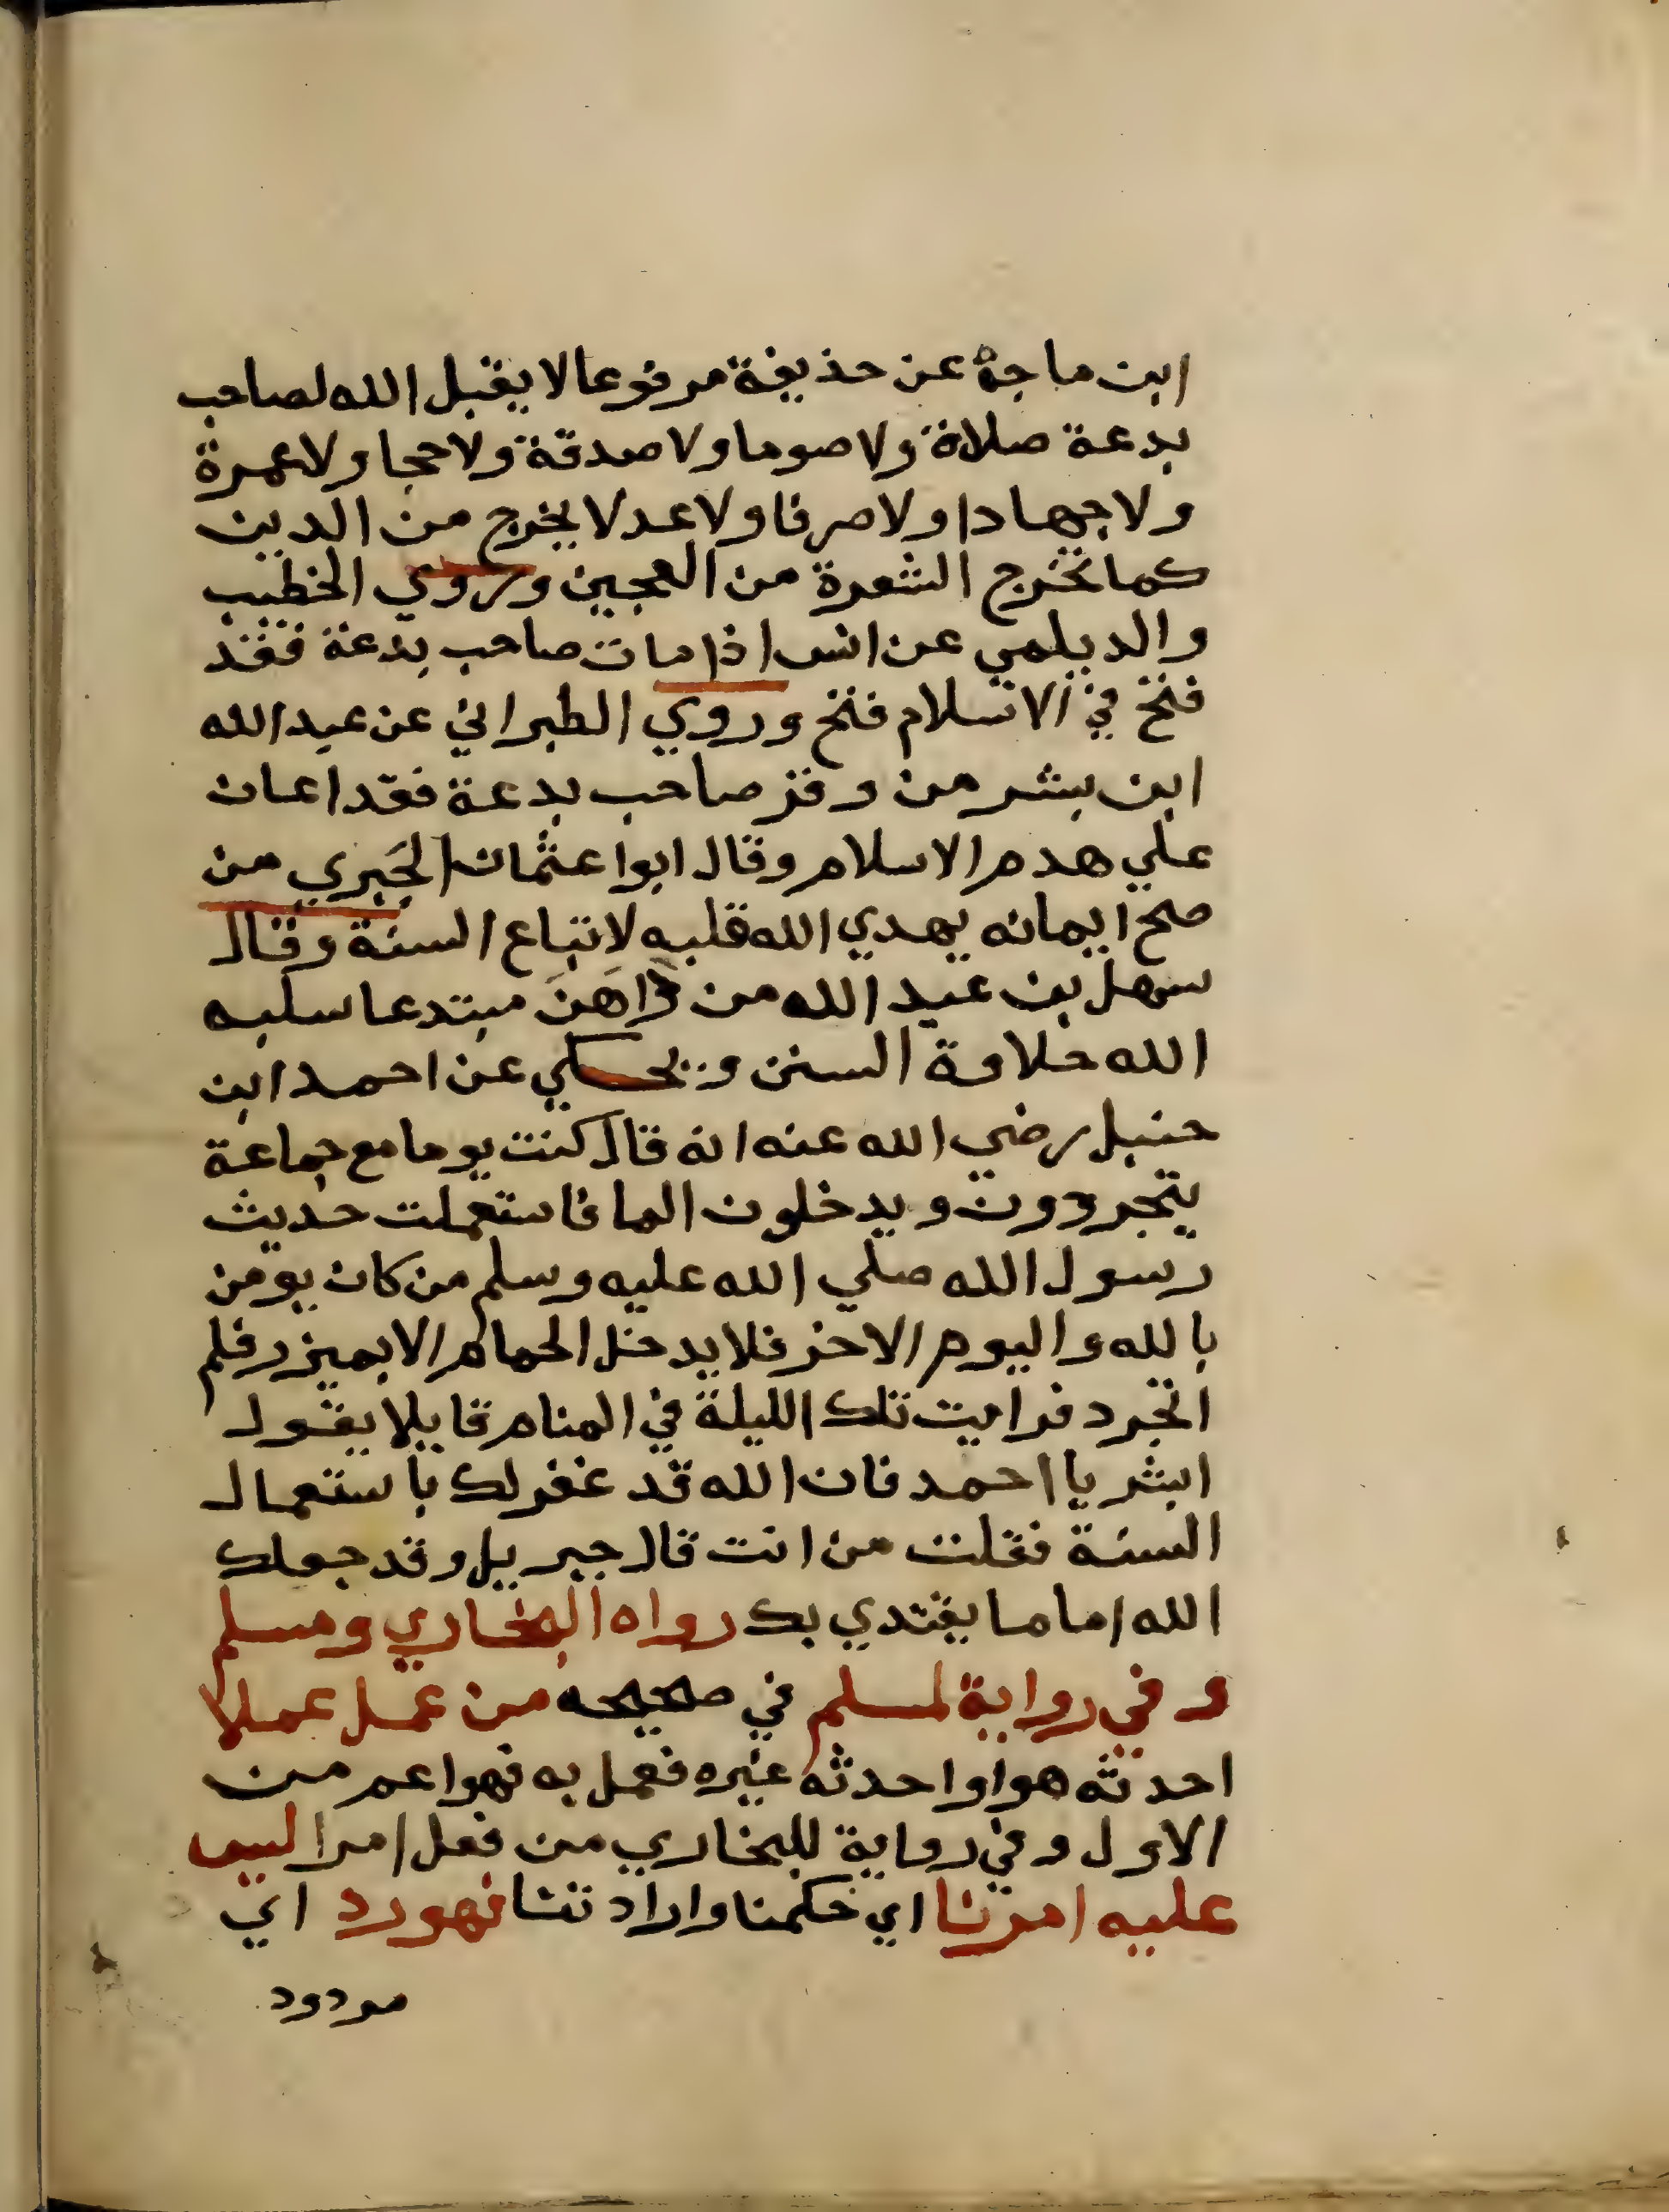 ابن ماجة عن حذيفة مرفوعا لا يقبل الله لصاحب
بدعة صلاة ولا صوما ولا صدقة ولا حجا ولا عمرة
ولا جهادا ولا صرفا ولا عدلا يخرج من الدين
كما تخرج الشعرة من العجين وروي الخطيب
والديلمي عن انس اذا مات صاحب بدعة فقد
فتح في الاسلام فتح وروي الطبراني عن عبد الله
ابن بشر من وقر صاحب بدعة فقد اعان
علي هدم الاسلام وقال ابوا عثمان الحَبِري من
صح ايمانه يهدي الله قلبه لاتباع السنة وقال
سهل بن عبد الله من داهَنَ مبتدعا سلبه
الله حلاوة السنن ويحكي عن احمد ابن
حنبل رضي الله عنه انه قال كنت يوما مع جماعة
يتجردون ويدخلون الما فاستعملت حديث
رسول الله صلي الله عليه وسلم من كان يومن
بالله واليوم الاخر فلا يدخل الحمام الا بميزر فلم
اتجرد فرايت تلك الليلة في المنام قايلا يقول
ابشر يا احمد فان الله قد غفر لك باستعمال
السنة فقلت من انت قال جبريل وقد جعلك
الله اماما يقتدي بك رواه البخاري ومسلم
وفي رواية لمسلم في صحيحه من عمل عملا
احدثه هو او احدثه غيره فعمل به فهو اعم من
الاول وفي رواية للبخاري من فعل امرا ليس
عليه امرنا اي حكمنا واراد تنا فهو رد اي
مردود